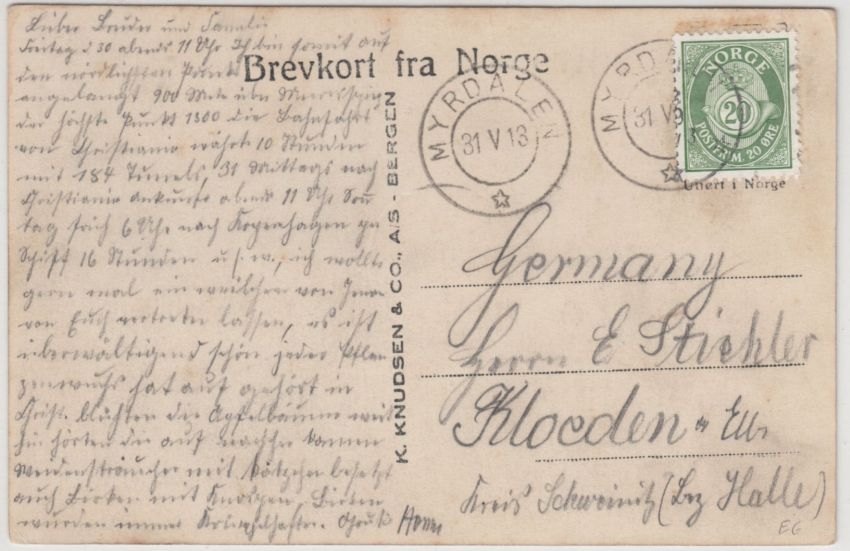 Lieber Bruder und Familie
Freitag d 30 abends 11 Uhr Ich bin somit auf
den nördlichsten Punkt
angelangt 900 Mete über Meeresspieg
der höchste Punkt 1300 die Bahnfahrt
von Christiania währte 10 Stunden
mit 184 Tunnels, 31 Mittags nach
Christiania ankunft abends 11 Uhr Son
tag früh 6 Uhr nach Kopenhagen per
Schiff 16 Stunden u.s.w., ich wollte
gern mal ein von
von Euch vertreten lassen, es ist
überwältigend schön jeder Pflan
zenwuchs hat auf gehört in
Christ. blühten die Apfelbäume weit
hin hörten die auf nachher kamen
Weidensträucher mit Kätzchen besetzt
auch Birken mit Knospen. Birken
wurden immer Gruß
Brevkort fra Norge
K. KNUDSEN & CO., A/S - BERGEN
MYRDALEN
31 V 13
MYRDA
31 V
NORGE
20
POSTFRIM. 20 ØRE
Utført i Norge
Germany
Herrn E Stichler
Kloeden a Elbe
Kreis Schweinitz (Bez Halle)
EG